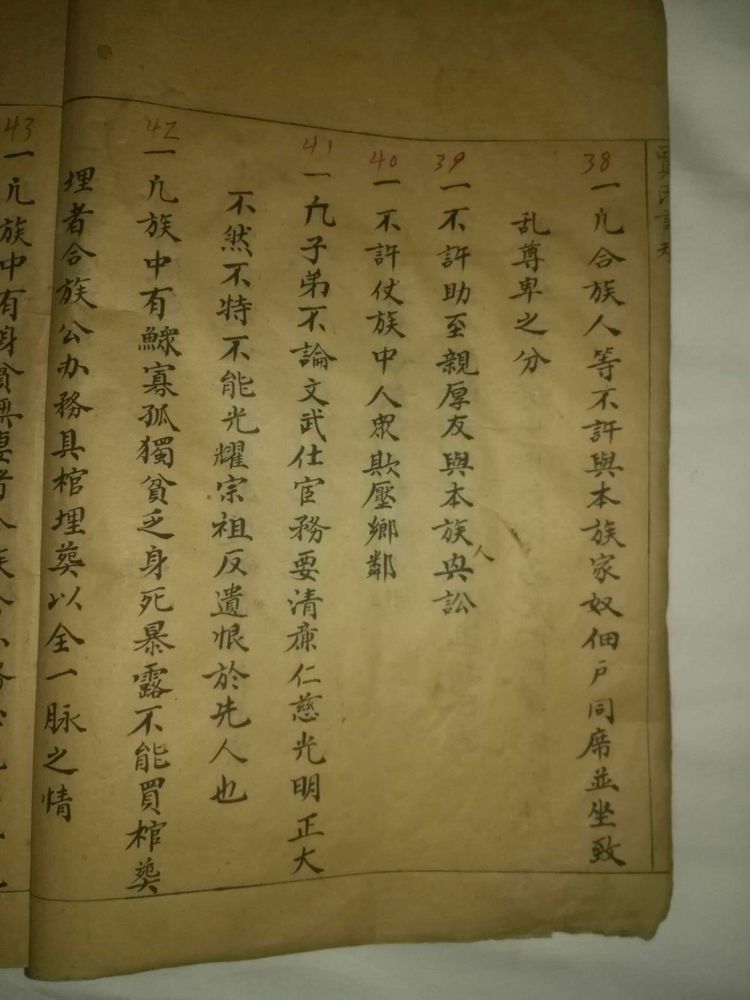 38
一凢合族人等不許與本族家奴佃戶同席並坐致
乱尊卑之分
39
一不許助至親厚友與本族人兴訟
40
一不許仗族中人眾欺壓鄉鄰
41
一凢子弟不論文武仕宦務要清廉仁慈光明正大
不然不特不能光耀宗祖反遺恨於先人也
42
一凢族中有鰥寡孤獨貧乏身死暴露不能買棺葬
埋者合族公办務具棺埋葬以全一脉之情
43
一凢族中有身貧無